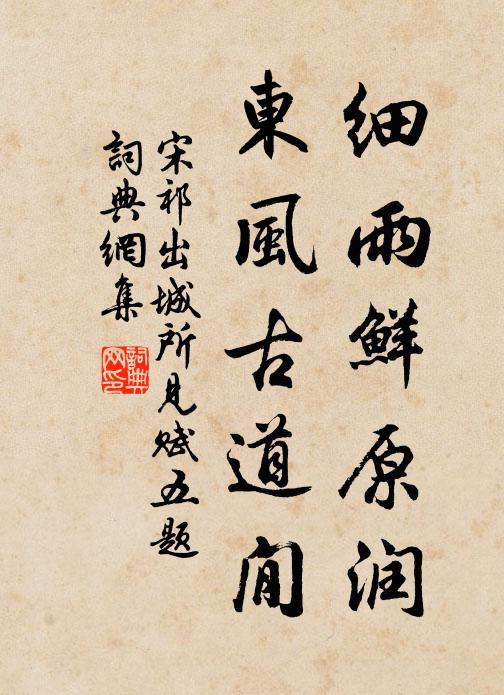 細雨鮮原润
東風古道閒
宋祁出城所見赋五题
詞典網集
詞典网印